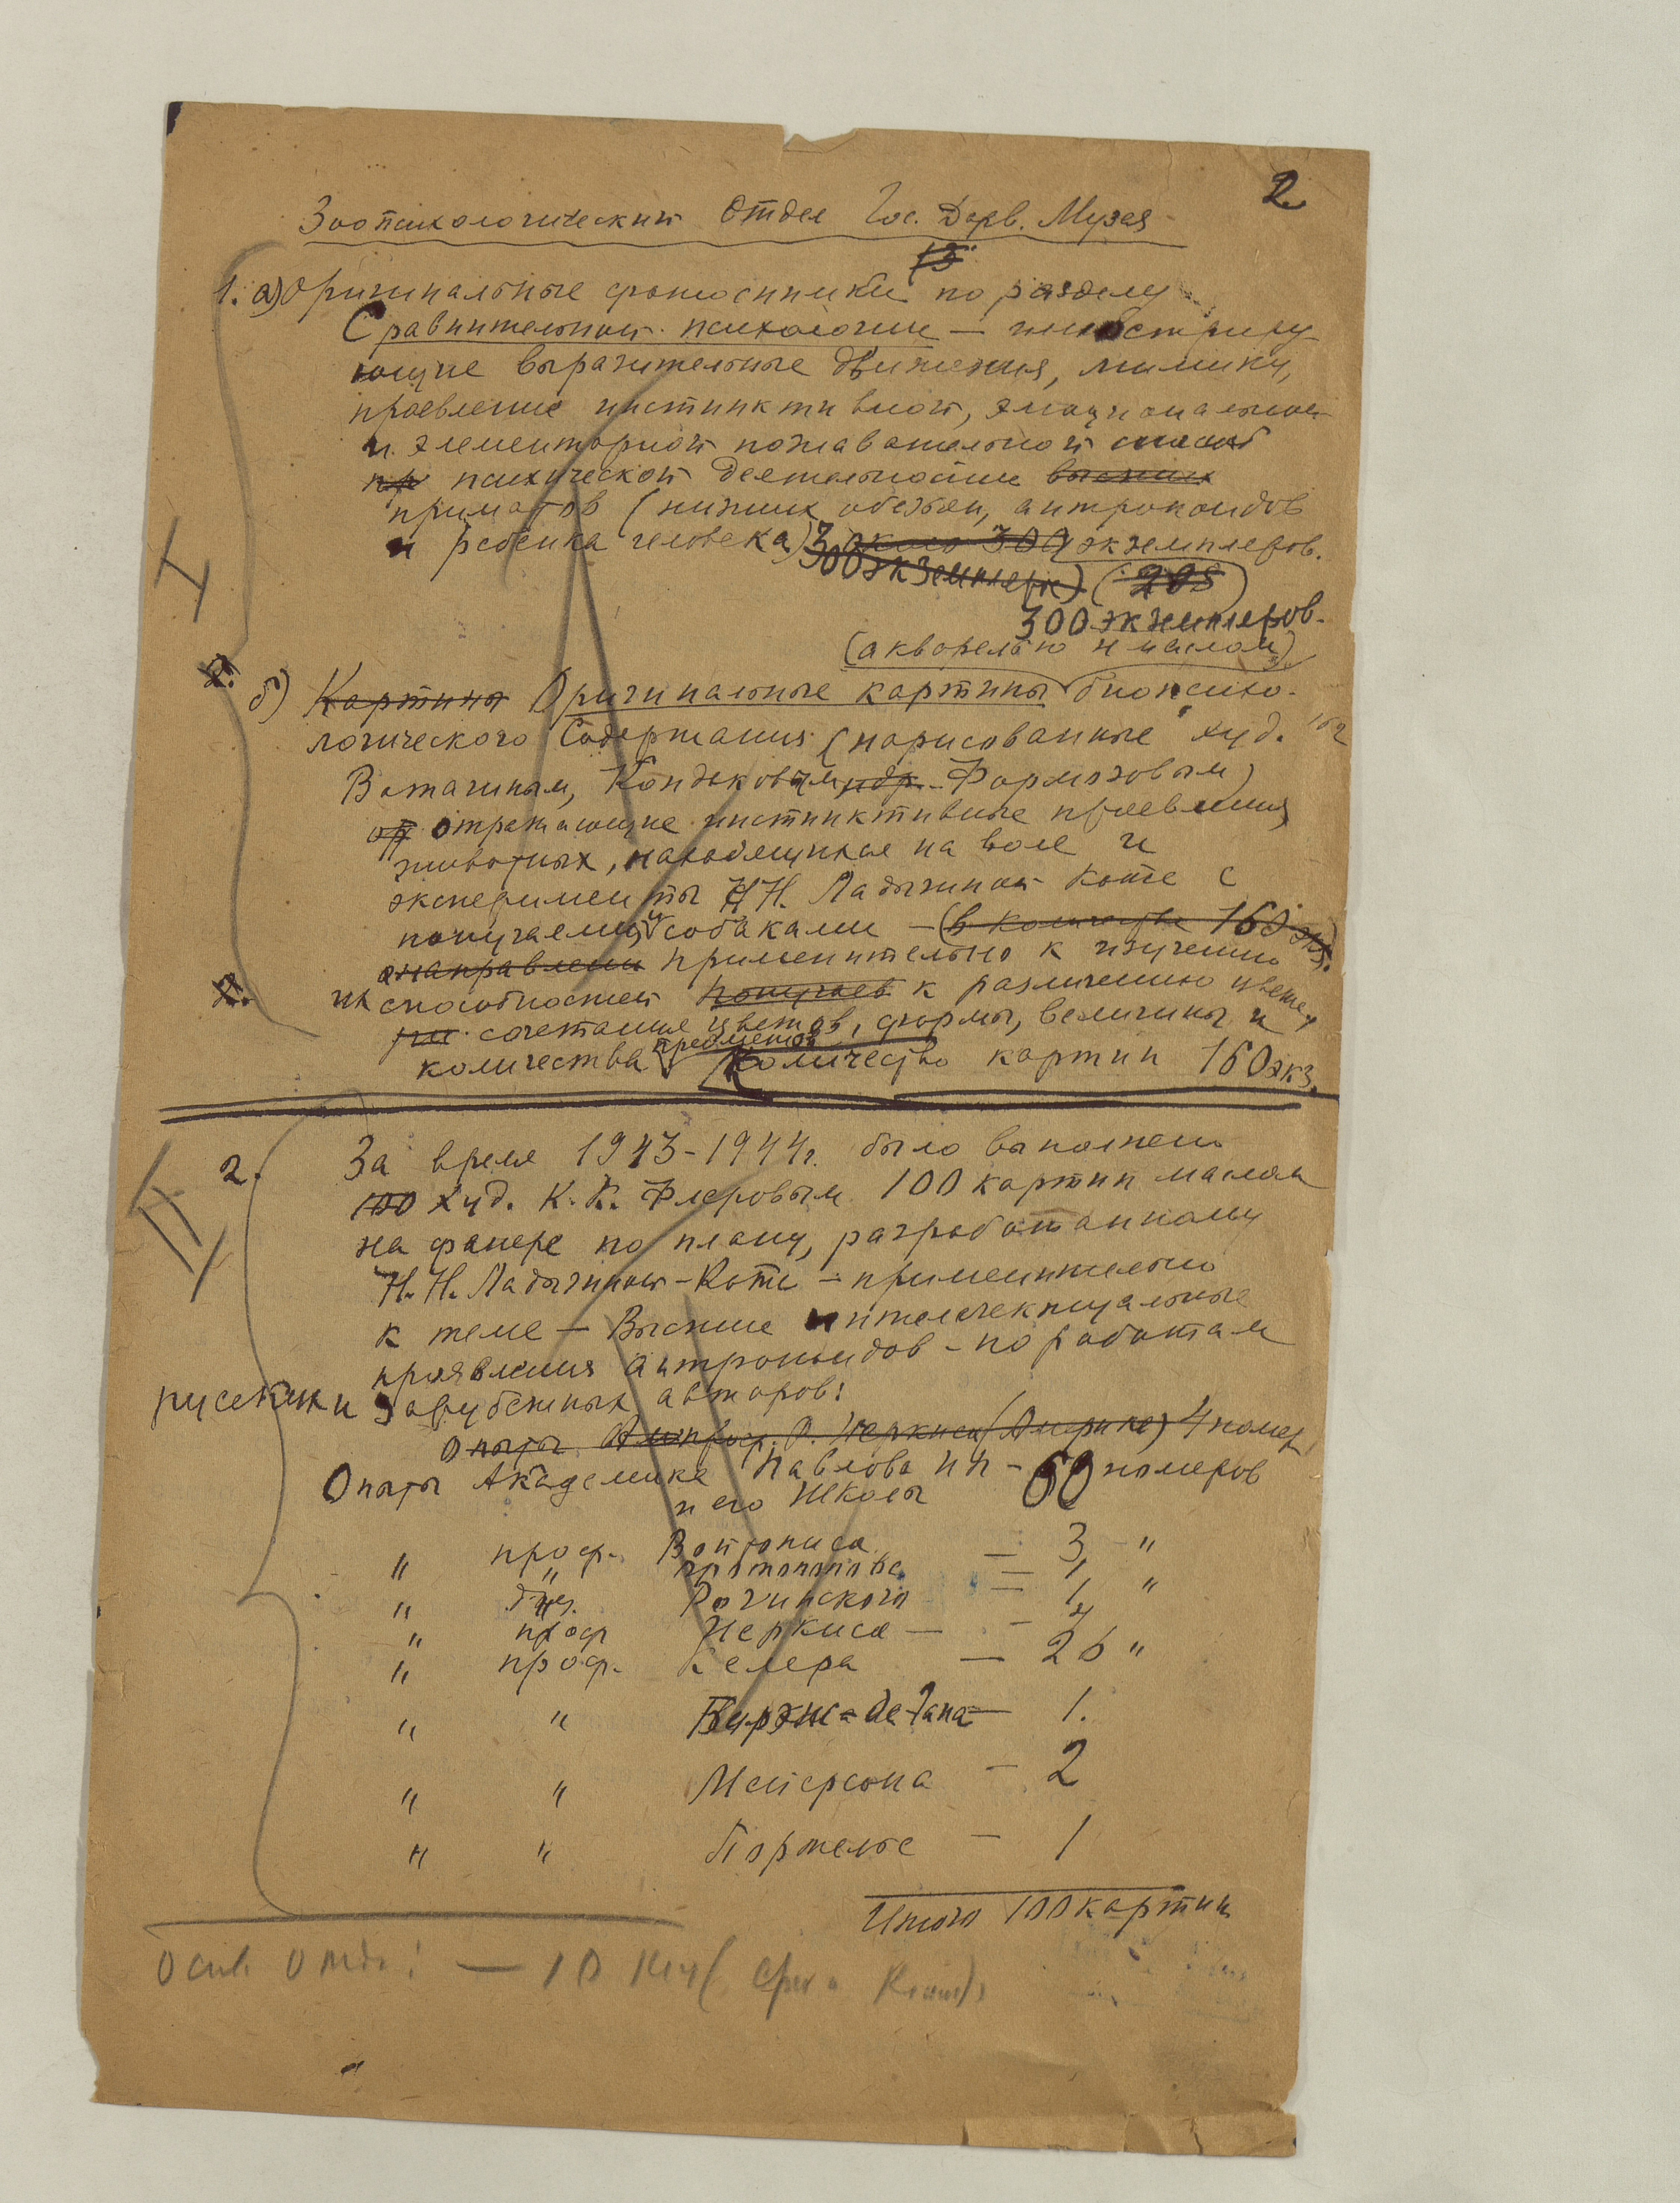 2.
Зоопсихологический Отдел Гос. Дарв. Музея
1. а) Оригинальные фотоснимки по разделу
Сравнительной психологии — иллюстриру-
ющие выразительные движения, мимику,
проявление инстинктивной, эмоциональной
и элементарной познавательной
пр психической деятельности высших
приматов (низших обезьян, антропоидов
и ребенка человека) около 300 экземпляров.
300 экземпляр) (205)
300 экземпляров.
(акварелью и маслом)
2.
б) Картины Оригинальные картины биопсихо-
логического Содержания (нарисованные худ.
Ватагиным, Кондаковым, и др. Формозовым)
от отражающие инстинктивные проявления
животных, находящихся на воле и
эксперименты Н.Н. Ладыгиной Котс с
попугаем и собаками — (в количестве 160 экз.
направлени применительно к изучению
2. их способностей попугаев к различению цветов,
сочетания цветов, формы, величины и
количества предметов Количество картин 160 экз.
I
II
2. За время 1943-1944г. было выполнено
100 худ. К. К. Флеровым 100 картин маслом
на фанере по плану, разработанному
Н. Н. Ладыгиной-Котс — применительно
к теме — Высшие интеллектуальные
проявления антропоидов — по работам
русских и зарубежных авторов:
Опыты проф. Р. Иеркиса (Америка) 4 номер
Опыты Академика Павлова ИП — 60 номеров
и его школы
" проф. Войтониса — 3 "
" " Протопопова — 1
" Рогинского — 1 "
" проф Иеркиса — 4
" проф. Келера — 26 "
" " — 1.
" " Мейерсона — 2
" " Портелье — 1
Итого 100 картин
— 10